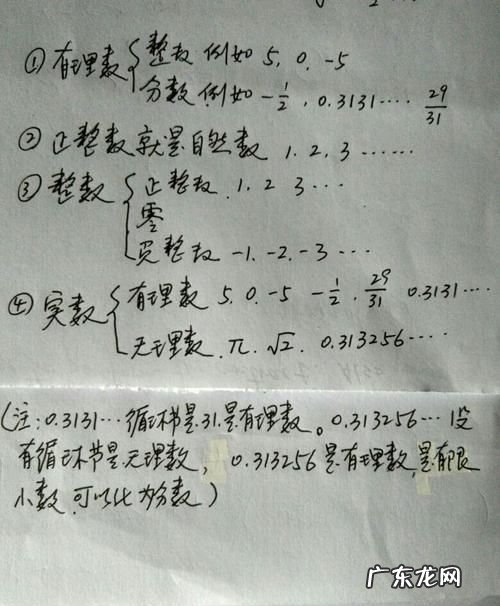 ① 有理数 { 整数 例如 5, 0, -5
分数 例如 -1/2, 0.3131…… 29/31
② 正整数就是自然数 1, 2, 3 ……
③ 整数 { 正整数, 1, 2 3 …
零
负整数 -1, -2, -3 …
④ 实数 { 有理数 5, 0, -5 -1/2, 29/31 0.3131…
无理数, π, √2, 0.313256……
(注:0.3131…循环节是31.是有理数。0.313256…没
有循环节是无理数, 0.313256是有理数,是有限
小数,可以化为分数)
广东龙网